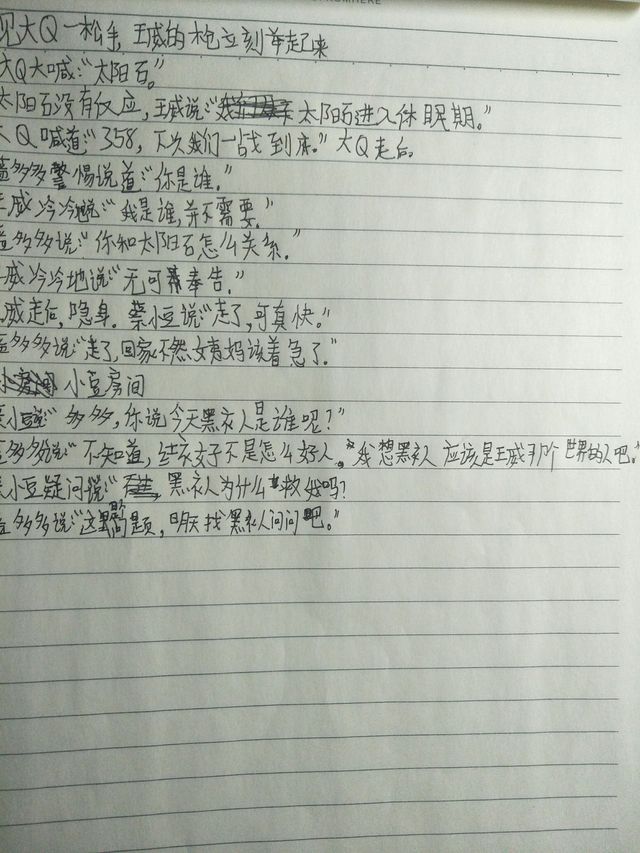 见大Q一松手，王威的枪立刻举起来
大Q大喊：“太阳石。”
太阳石没有仅应，王威说：“太阳石进入休眠期。”
大Q喊道：“358，下次我们一战到底。”大Q走后。
蓝多多警惕说道：“你是谁。”
王威冷冷地说：“我是谁，并不需要。”
蓝多多说：“你和太阳石怎么关系。”
王威冷冷地说：“无可奉告。”
王威走后，隐身。蔡小豆说：“走了，可真快。”
蓝多多说：“走了，回家不然姨妈该着急了。”
小豆房间
蔡小豆说：“多多，你说今天黑衣人是谁呢？”
蓝多多说：“不知道，结衣子不是怎么好人。”“我想黑衣人应该是王威那个世界的人吧。”
蔡小豆疑问说：“黑衣人为什么救我吗？
蓝多多说：“这里的问题，明天找黑衣人问问吧。”